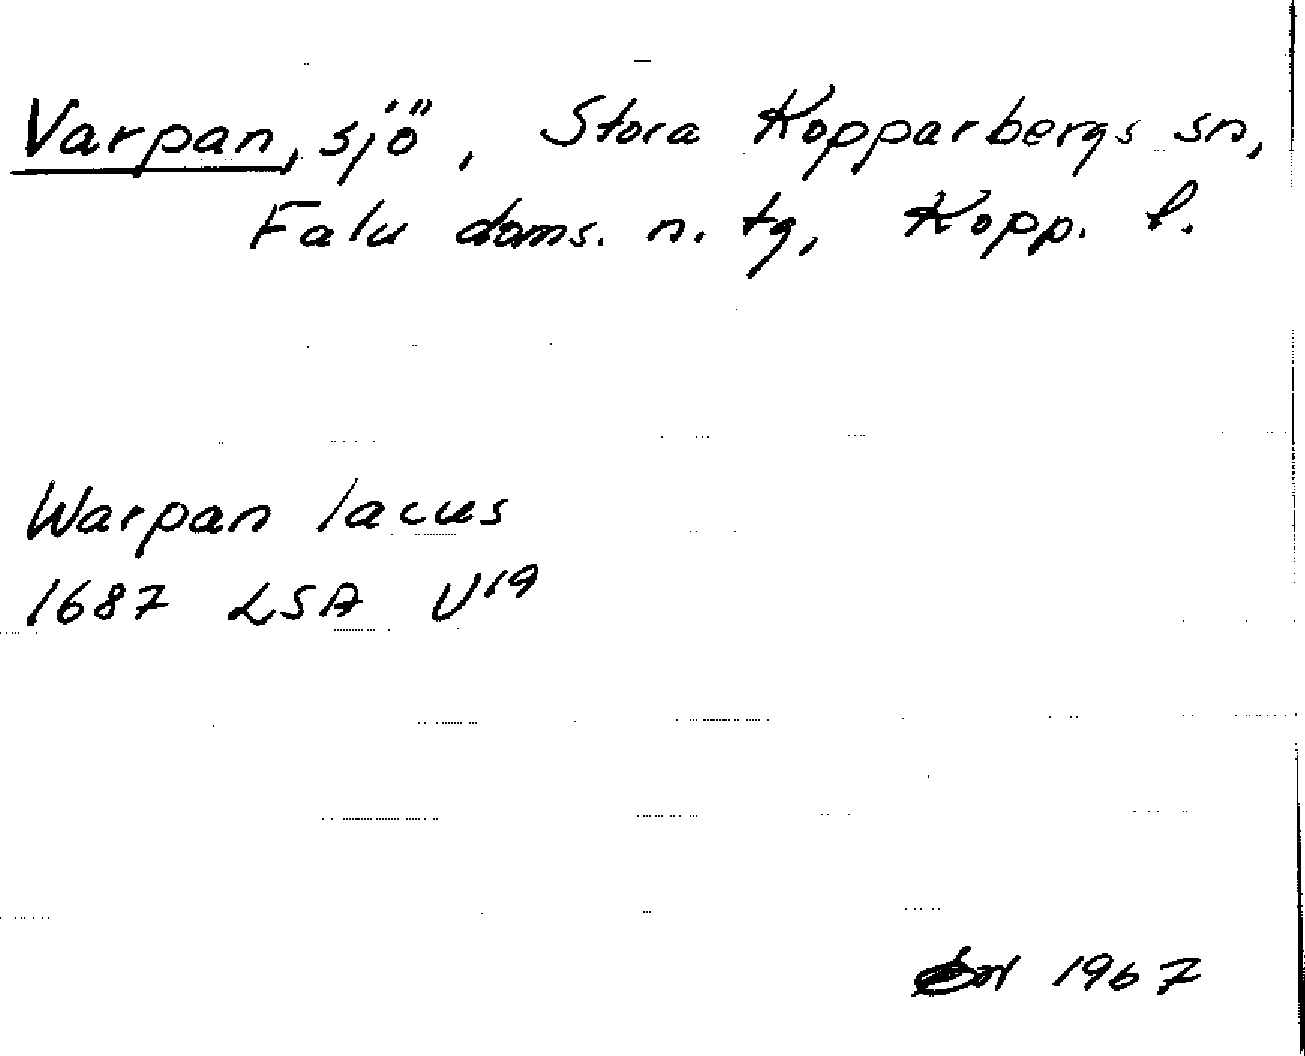 Varpan, sjö, Stora Kopparbergs sn,
Falu doms. n. tg, Kopp. l.
Warpan lacus
1687 LSA U19
1967